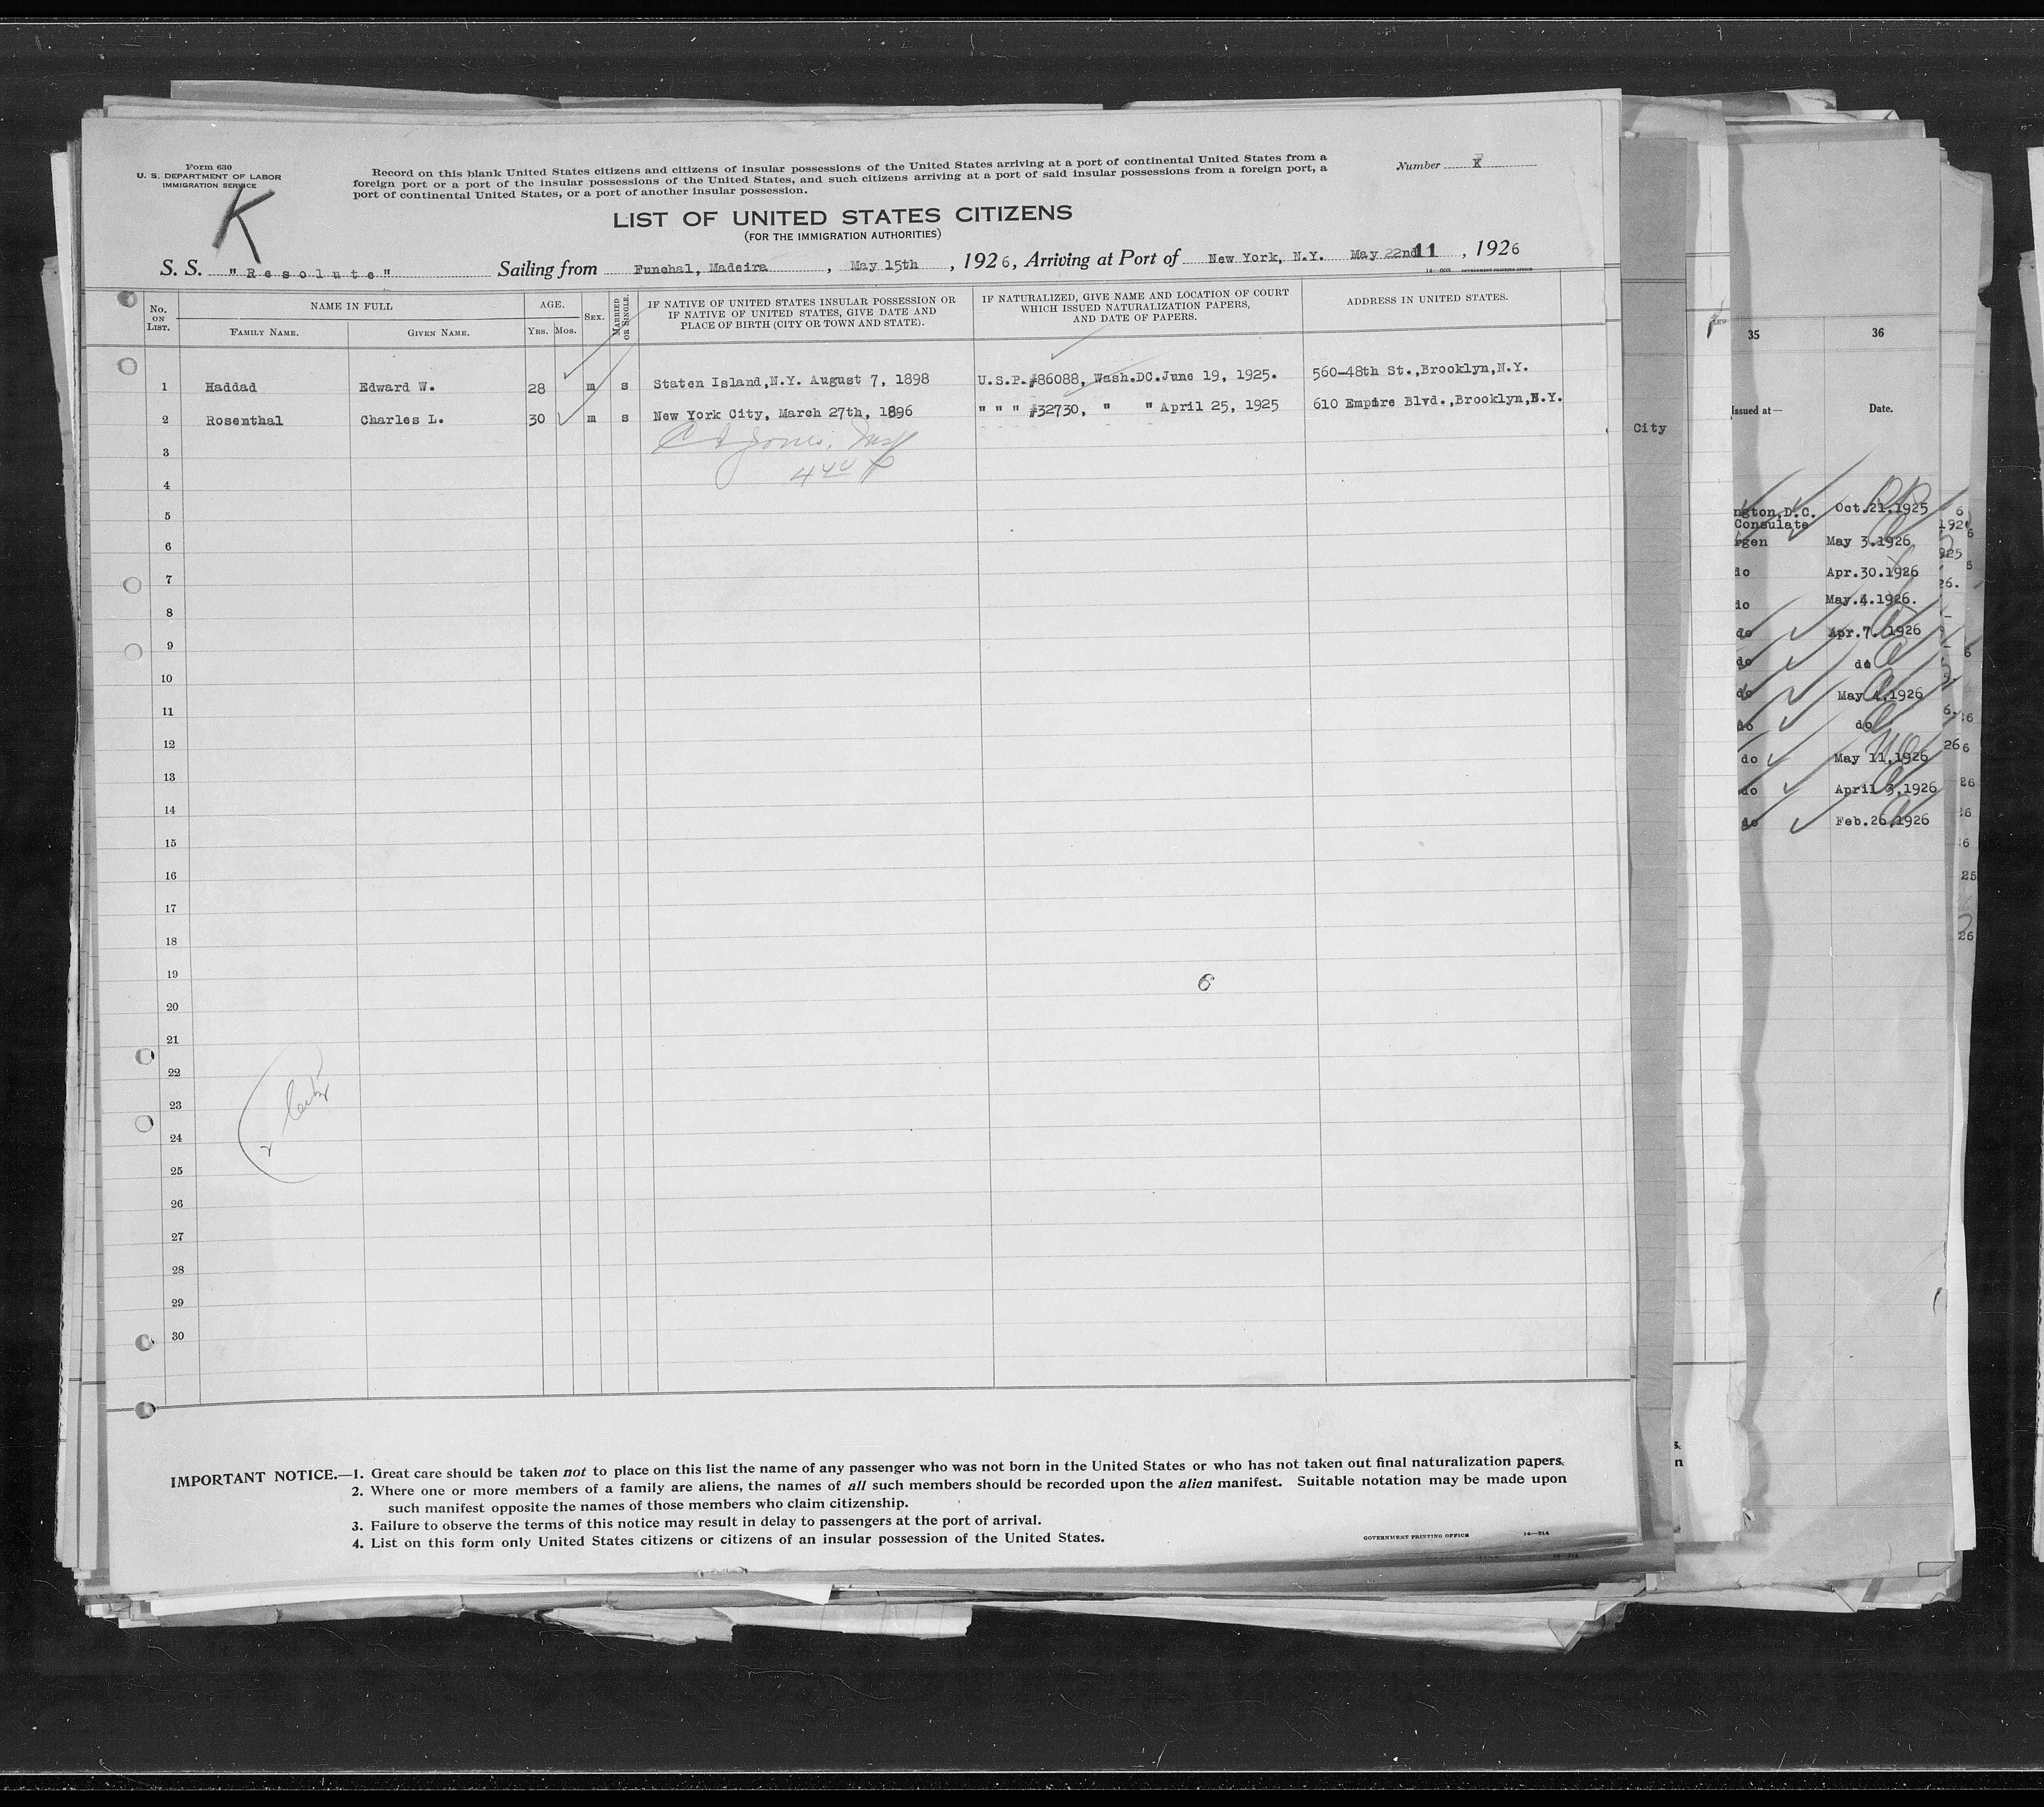 Form 630
U. S. DEPARTMENT OF LABOR
IMMIGRATION SERVICE
K
Record on this blank United States citizens and citizens of insular possessions of the United States arriving at a port of continental United States from a
foreign port or a port of the insular possessions of the United States, and such citizens arriving at a port of said insular possessions from a foreign port, a
port of continental United States, or a port of another insular possession.
Number K
LIST OF UNITED STATES CITIZENS
(FOR THE IMMIGRATION AUTHORITIES)
S. S. "Resolute" Sailing from Funchal, Madeira, May 15th, 1926, Arriving at Port of New York, N.Y. May 22nd 11, 1926
14—608 GOVERNMENT PRINTING OFFICE
No. ON LIST.
NAME IN FULL
FAMILY NAME. GIVEN NAME.
AGE.
YRS. MOS.
SEX.
MARRIED OR SINGLE.
IF NATIVE OF UNITED STATES INSULAR POSSESSION OR
IF NATIVE OF UNITED STATES, GIVE DATE AND
PLACE OF BIRTH (CITY OR TOWN AND STATE).
IF NATURALIZED, GIVE NAME AND LOCATION OF COURT
WHICH ISSUED NATURALIZATION PAPERS,
AND DATE OF PAPERS.
ADDRESS IN UNITED STATES.
1 Haddad Edward W. 28 m s Staten Island,N.Y. August 7, 1898 U.S.P.#86088, Wash.DC.June 19, 1925. 560-48th St.,Brooklyn,N.Y.
2 Rosenthal Charles L. 30 m s New York City, March 27th, 1896 " " " #32730, " " April 25, 1925 610 Empire Blvd.,Brooklyn,N.Y.
3
4
5
6
7
8
9
10
11
12
13
14
15
16
17
18
19
6
20
21
22
23
24
25
26
27
28
29
30
IMPORTANT NOTICE.—1. Great care should be taken not to place on this list the name of any passenger who was not born in the United States or who has not taken out final naturalization papers.
2. Where one or more members of a family are aliens, the names of all such members should be recorded upon the alien manifest. Suitable notation may be made upon
such manifest opposite the names of those members who claim citizenship.
3. Failure to observe the terms of this notice may result in delay to passengers at the port of arrival.
4. List on this form only United States citizens or citizens of an insular possession of the United States.
GOVERNMENT PRINTING OFFICE 14—214
City
35 36
Issued at— Date.
ngton,D.C. Oct.21,1925
Consulate
rgen May 3.1926
do Apr.30.1926
do May.4.1926.
do Apr.7.1926
do do
do May 4,1926
do do
do May 11,1926
do April 3,1926
do Feb.26,1926